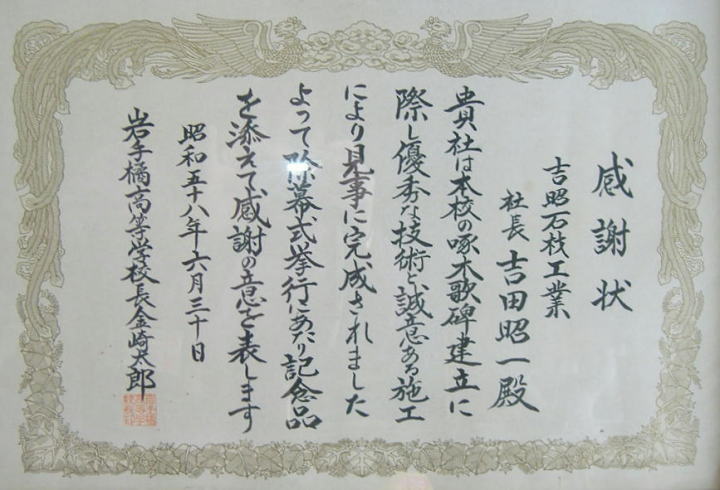 感謝状
吉昭石材工業
社長 吉田昭一殿
貴社は本校の啄木歌碑建立に
際し優秀な技術と誠意ある施工
により見事に完成されました
よって除幕式挙行にあたり記念品
を添えて感謝の意を表します
昭和五十八年六月三十日
岩手橘高等学校長金崎太郎